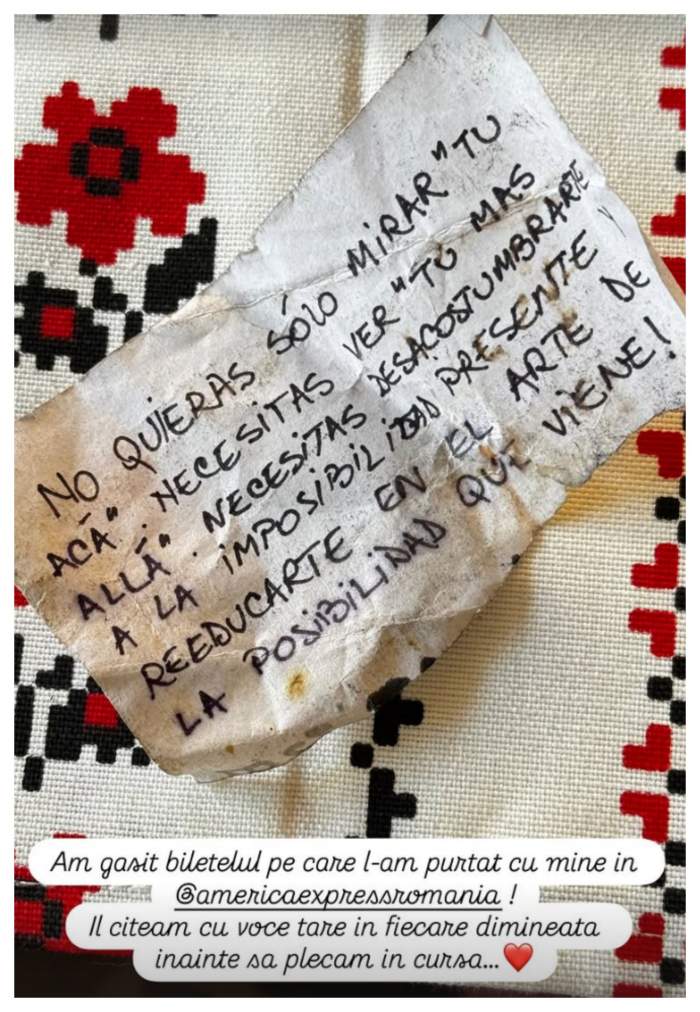 NO QUIERAS SÓLO MIRAR "TU
ACÁ". NECESITAS VER "TU MAS
ALLÁ". NECESITAS DESACOSTUMBRARTE
A LA IMPOSIBILIDAD PRESENTE Y
REEDUCARTE EN EL ARTE DE
LA POSIBILIDAD QUE VIENE!
Am gasit biletelul pe care l-am purtat cu mine in
@americaexpressromania !
Il citeam cu voce tare in fiecare dimineata
inainte sa plecam in cursa...❤️